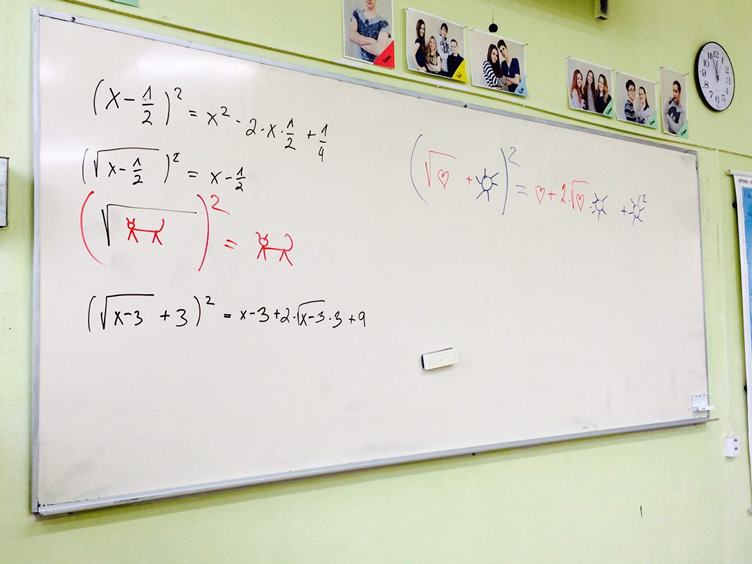 (x - 1/2)² = x² - 2·x·1/2 + 1/4
(√(x - 1/2))² = x - 1/2
(√ )² =
(√(x-3) + 3)² = x-3+2·√(x-3)·3+9
(√♡ + ☼)² = ♡ + 2·√♡·☼ + ☼²